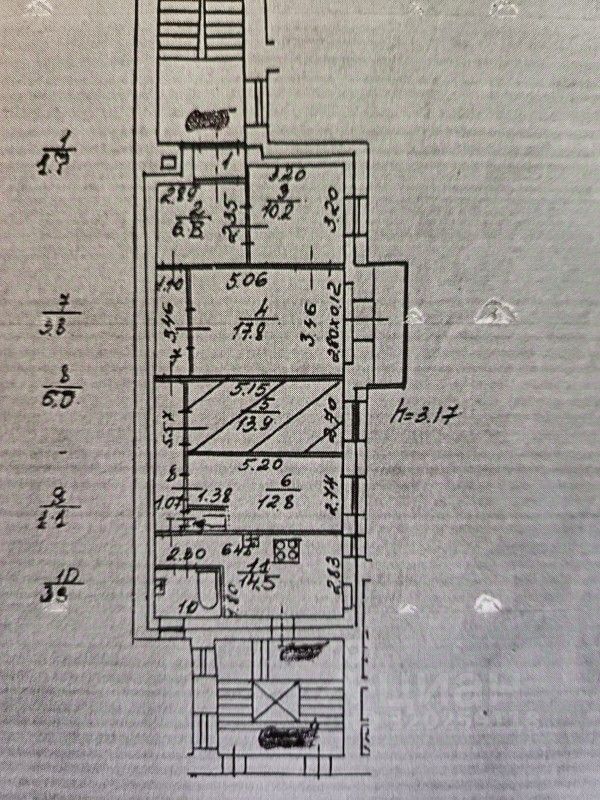 1
1.9
1
2.89
2
6.8
2.35
3.20
3
10.2
3.20
1.10
5.06
7
3.8
3.46
4
17.8
3.46
2.80x0.12
7
8
6.0
5.15
5
13.9
2.70
h=3.17
5.57
5.20
8
6
12.8
2.44
1.07
1.38
9
1.1
2.80
6.48
11
14.5
2.83
10
3.9
10
1.80